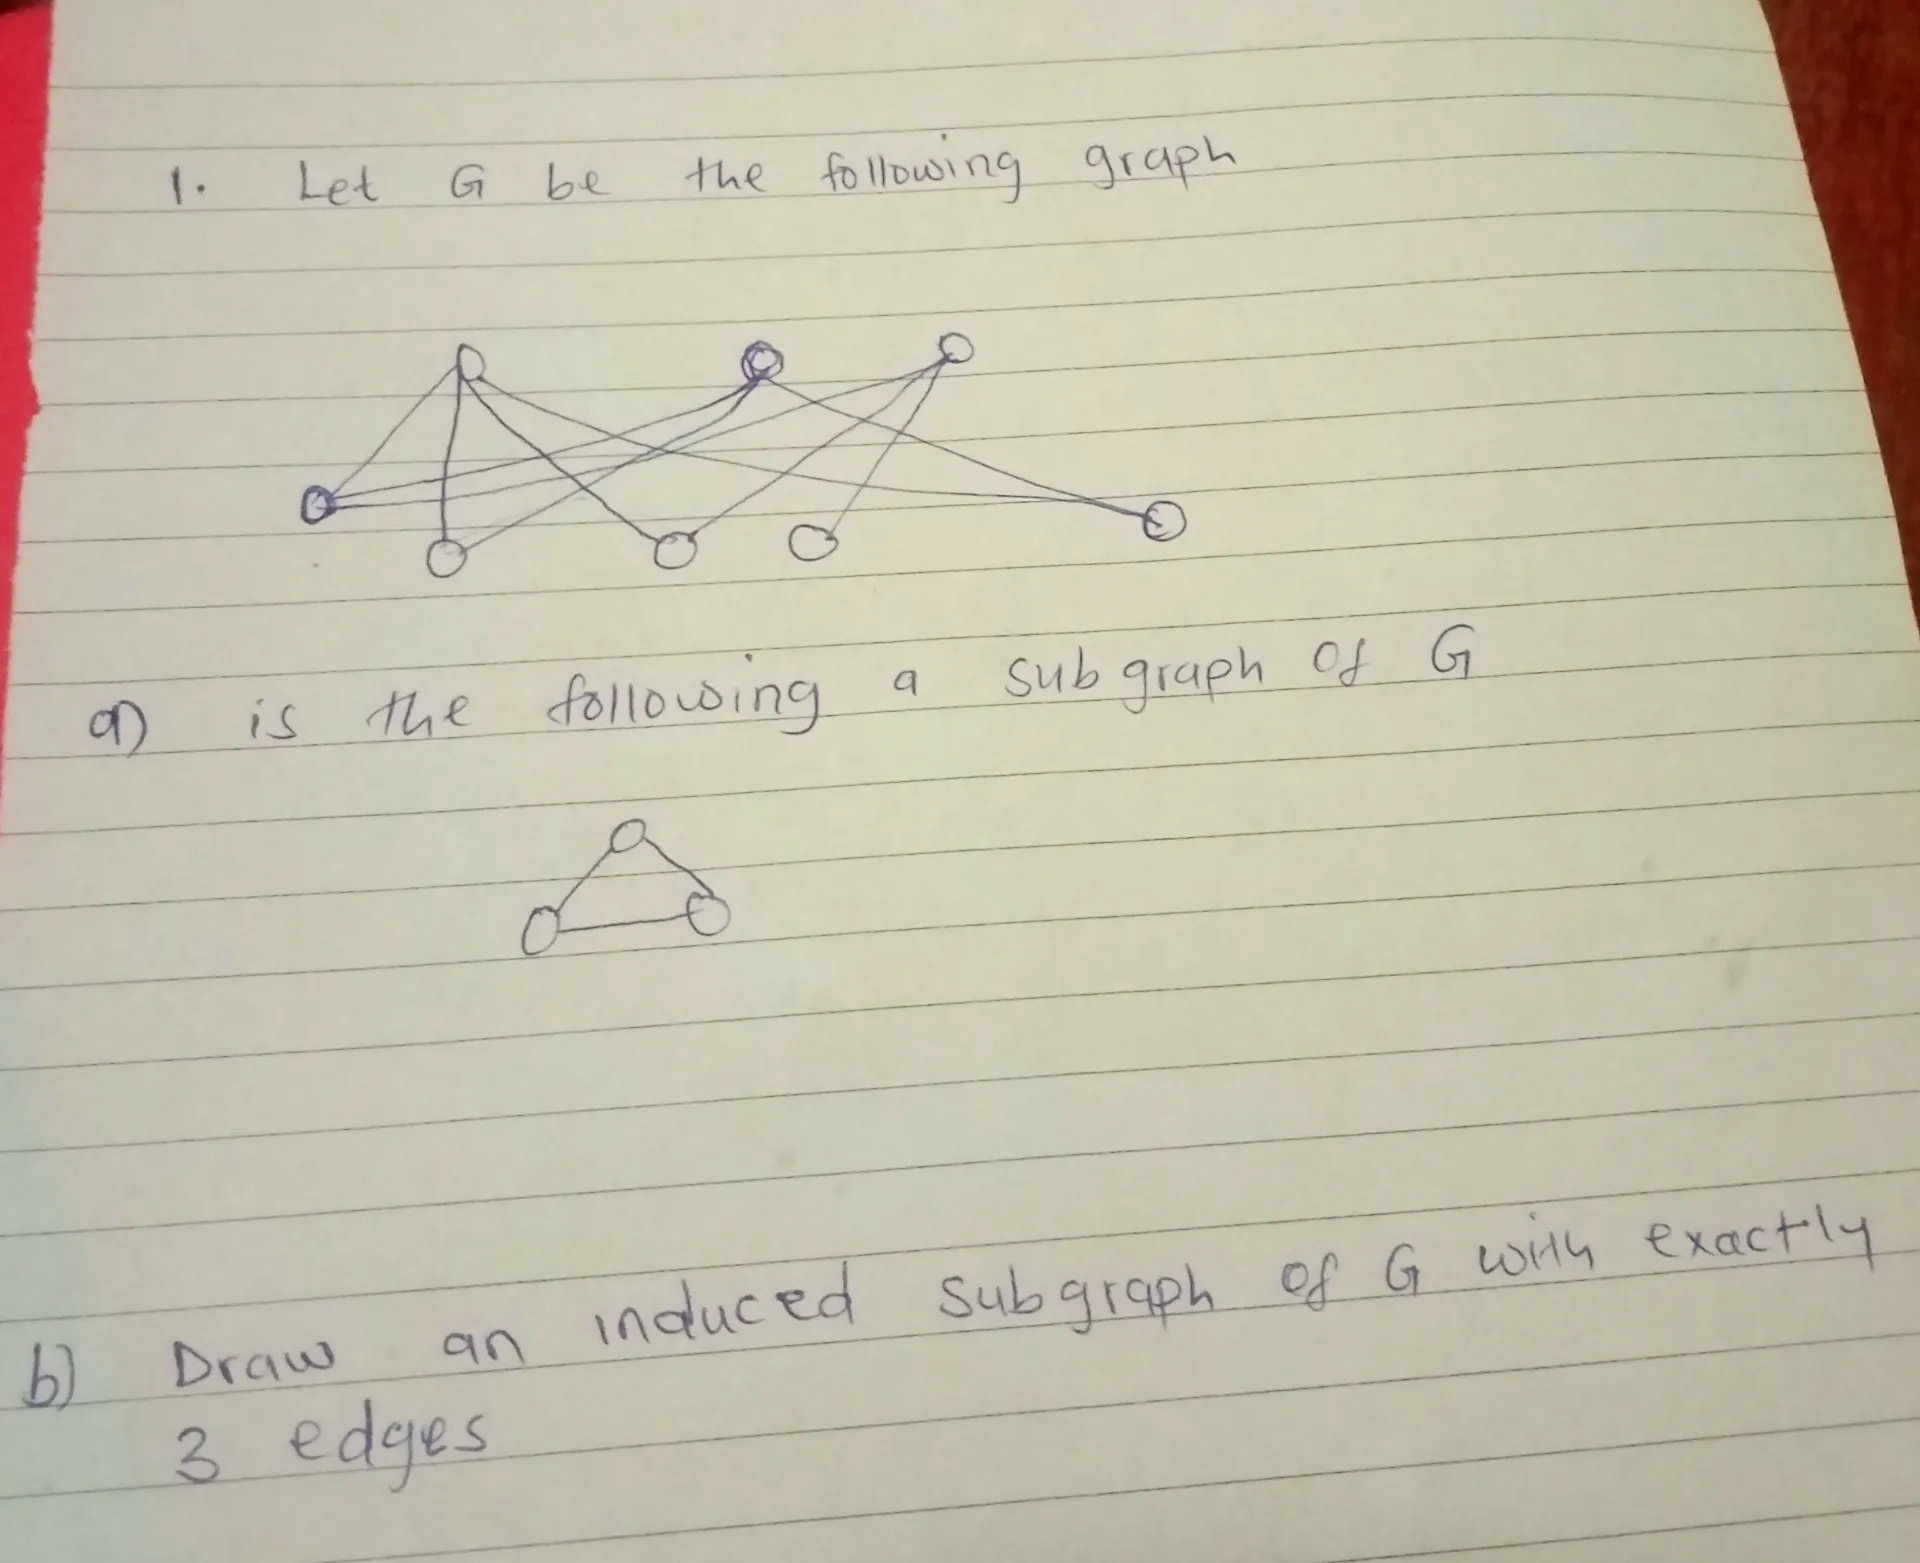 1. Let G be the following graph
a) is the following a subgraph of G
b) Draw an induced subgraph of G with exactly
3 edges